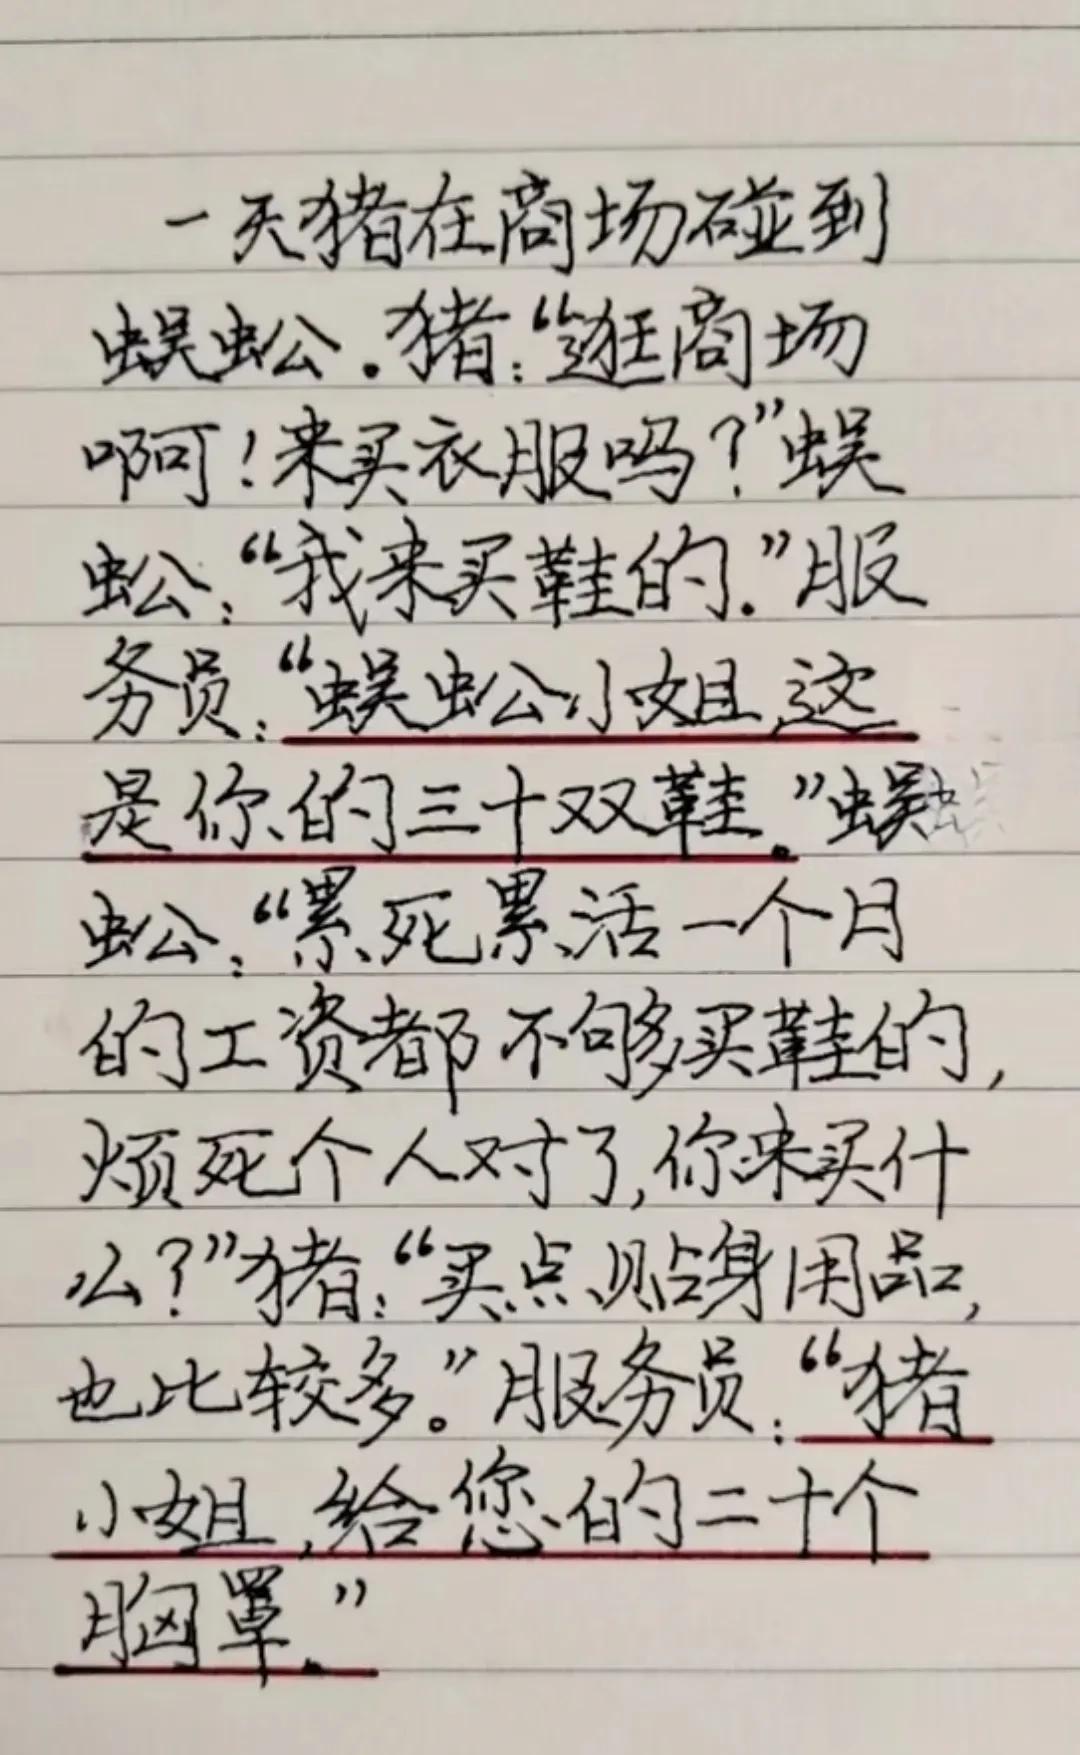 一天猪在商场碰到
蜈蚣.猪:“逛商场
啊!来买衣服吗?”蜈
蚣:“我来买鞋的.”服
务员:“蜈蚣小姐,这
是你的三十双鞋.”蜈
蚣:“累死累活一个月
的工资都不够买鞋的,
烦死个人对了,你来买什
么?”猪:“买点贴身用品,
也比较多.”服务员:“猪
小姐,给您的二十个
胸罩.”